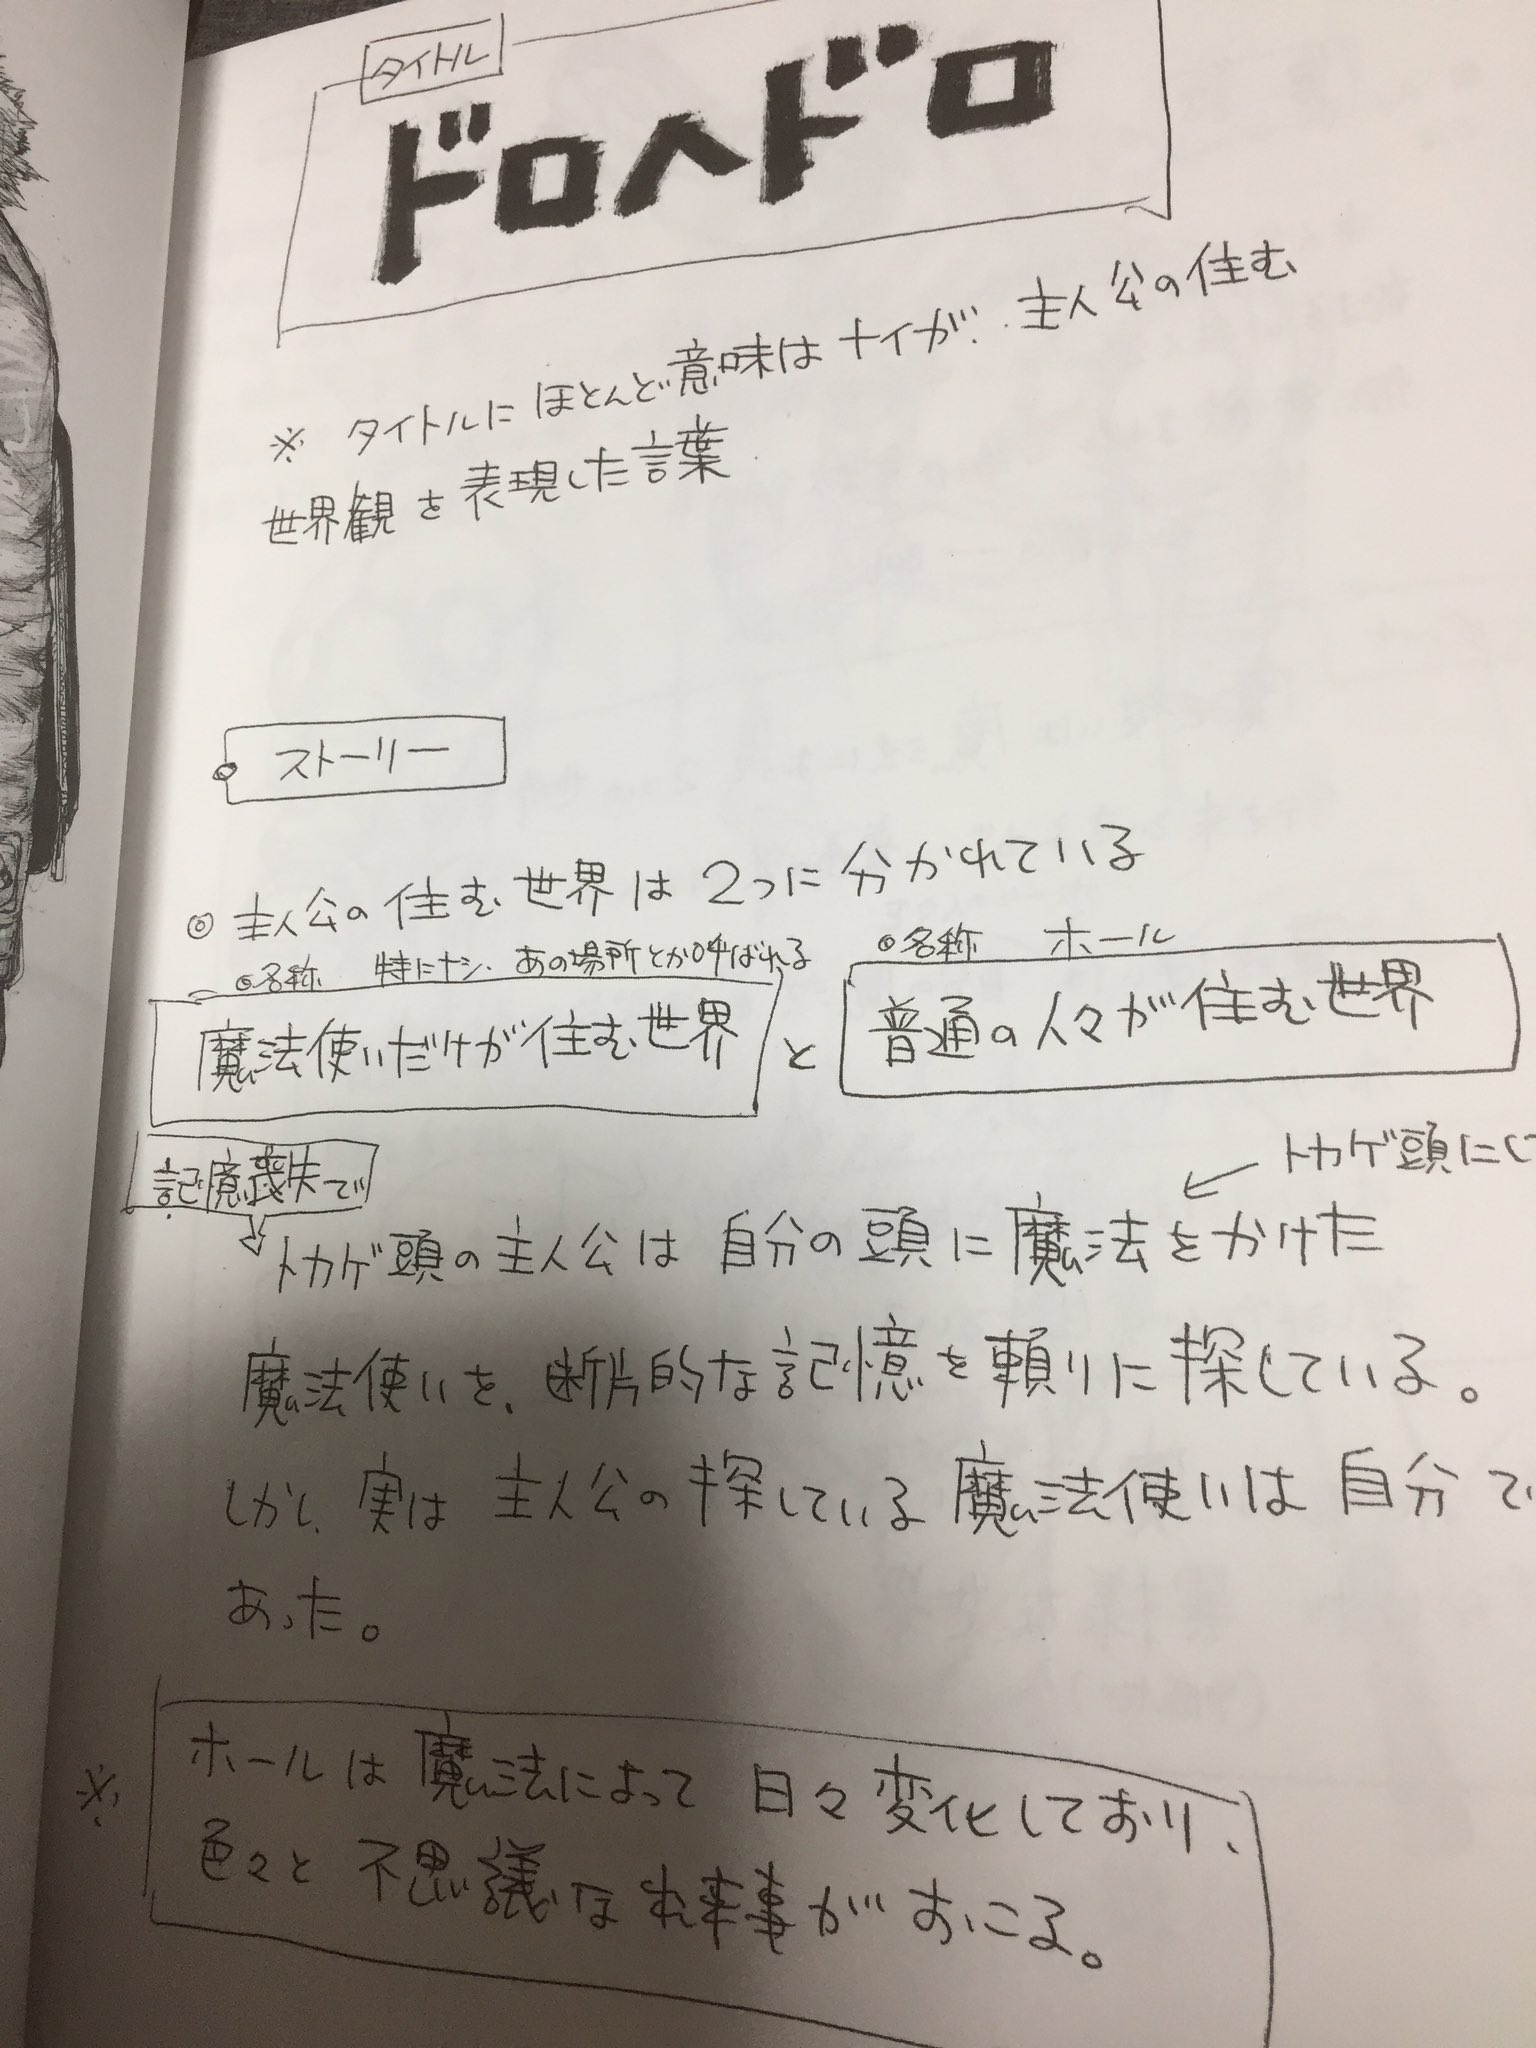 タイトル
ドロヘドロ
※ タイトルにほとんど意味はナイが、主人公の住む
世界観を表現した言葉
ストーリー
◎ 主人公の住む世界は2つに分かれている
◎名称 特にナシ、あの場所とか呼ばれる
◎名称 ホール
魔法使いだけが住む世界 と 普通の人々が住む世界
記憶喪失で
トカゲ頭にして
トカゲ頭の主人公は自分の頭に魔法をかけた
魔法使いを、断片的な記憶を頼りに探している。
しかし、実は主人公の探している魔法使いは自分で
あった。
※ ホールは魔法によって日々変化しており、
色々と不思議な出来事がおこる。